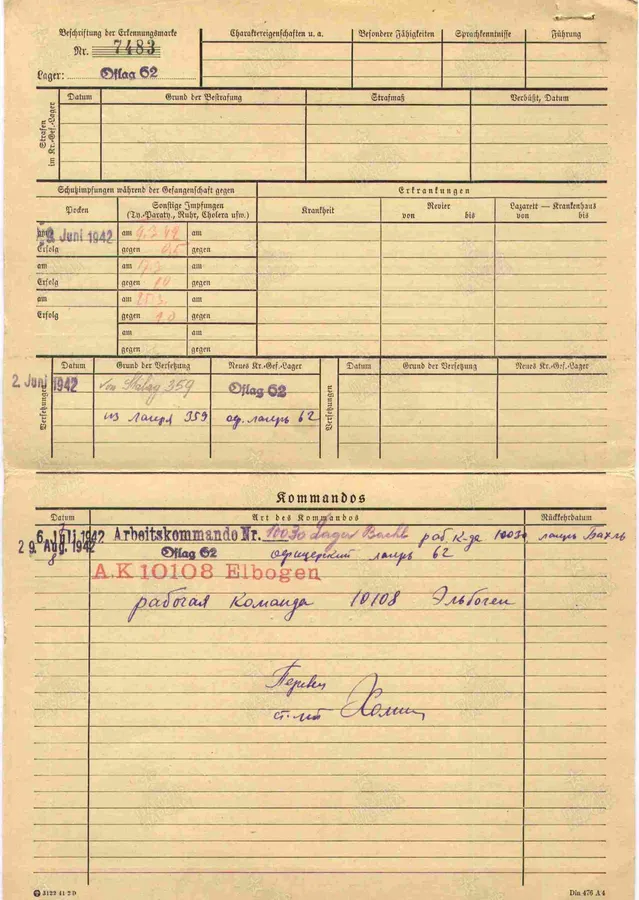 Beschriftung der Erkennungsmarke
Nr. 7483
Lager: Oflag 62
Charaktereigenschaften u. a.
Besondere Fähigkeiten
Sprachkenntnisse
Führung
Strafen im Kr.-Gef.-Lager
Datum
Grund der Bestrafung
Strafmaß
Verbüßt, Datum
Schutzimpfungen während der Gefangenschaft gegen
Erkrankungen
Pocken
Sonstige Impfungen
(Ty.-Paraty., Ruhr, Cholera usw.)
Krankheit
Revier
von bis
Lazarett — Krankenhaus
von bis
am Juni 1942 am am
Erfolg gegen 0.5 gegen
am am am
Erfolg gegen gegen
am am am
Erfolg gegen gegen
am am
gegen gegen
Versetzungen
Datum
Grund der Versetzung
Neues Kr.-Gef.-Lager
Versetzungen
Datum
Grund der Versetzung
Neues Kr.-Gef.-Lager
2. Juni 1942 von Stalag 359 Oflag 62
из лагеря 359 оф. лагерь 62
Kommandos
Datum
Art des Kommandos
Rückkehrdatum
6. Juli 1942 Arbeitskommando Nr. 10030 Lager раб к-да 10030 лагерь Бахль
29. Aug. 1942 Oflag 62 офицерский лагерь 62
A.K 10108 Elbogen
рабочая команда 10108 Эльбоген
Перевел
ст. л-т
3129 41 2 D
Din 476 A 4